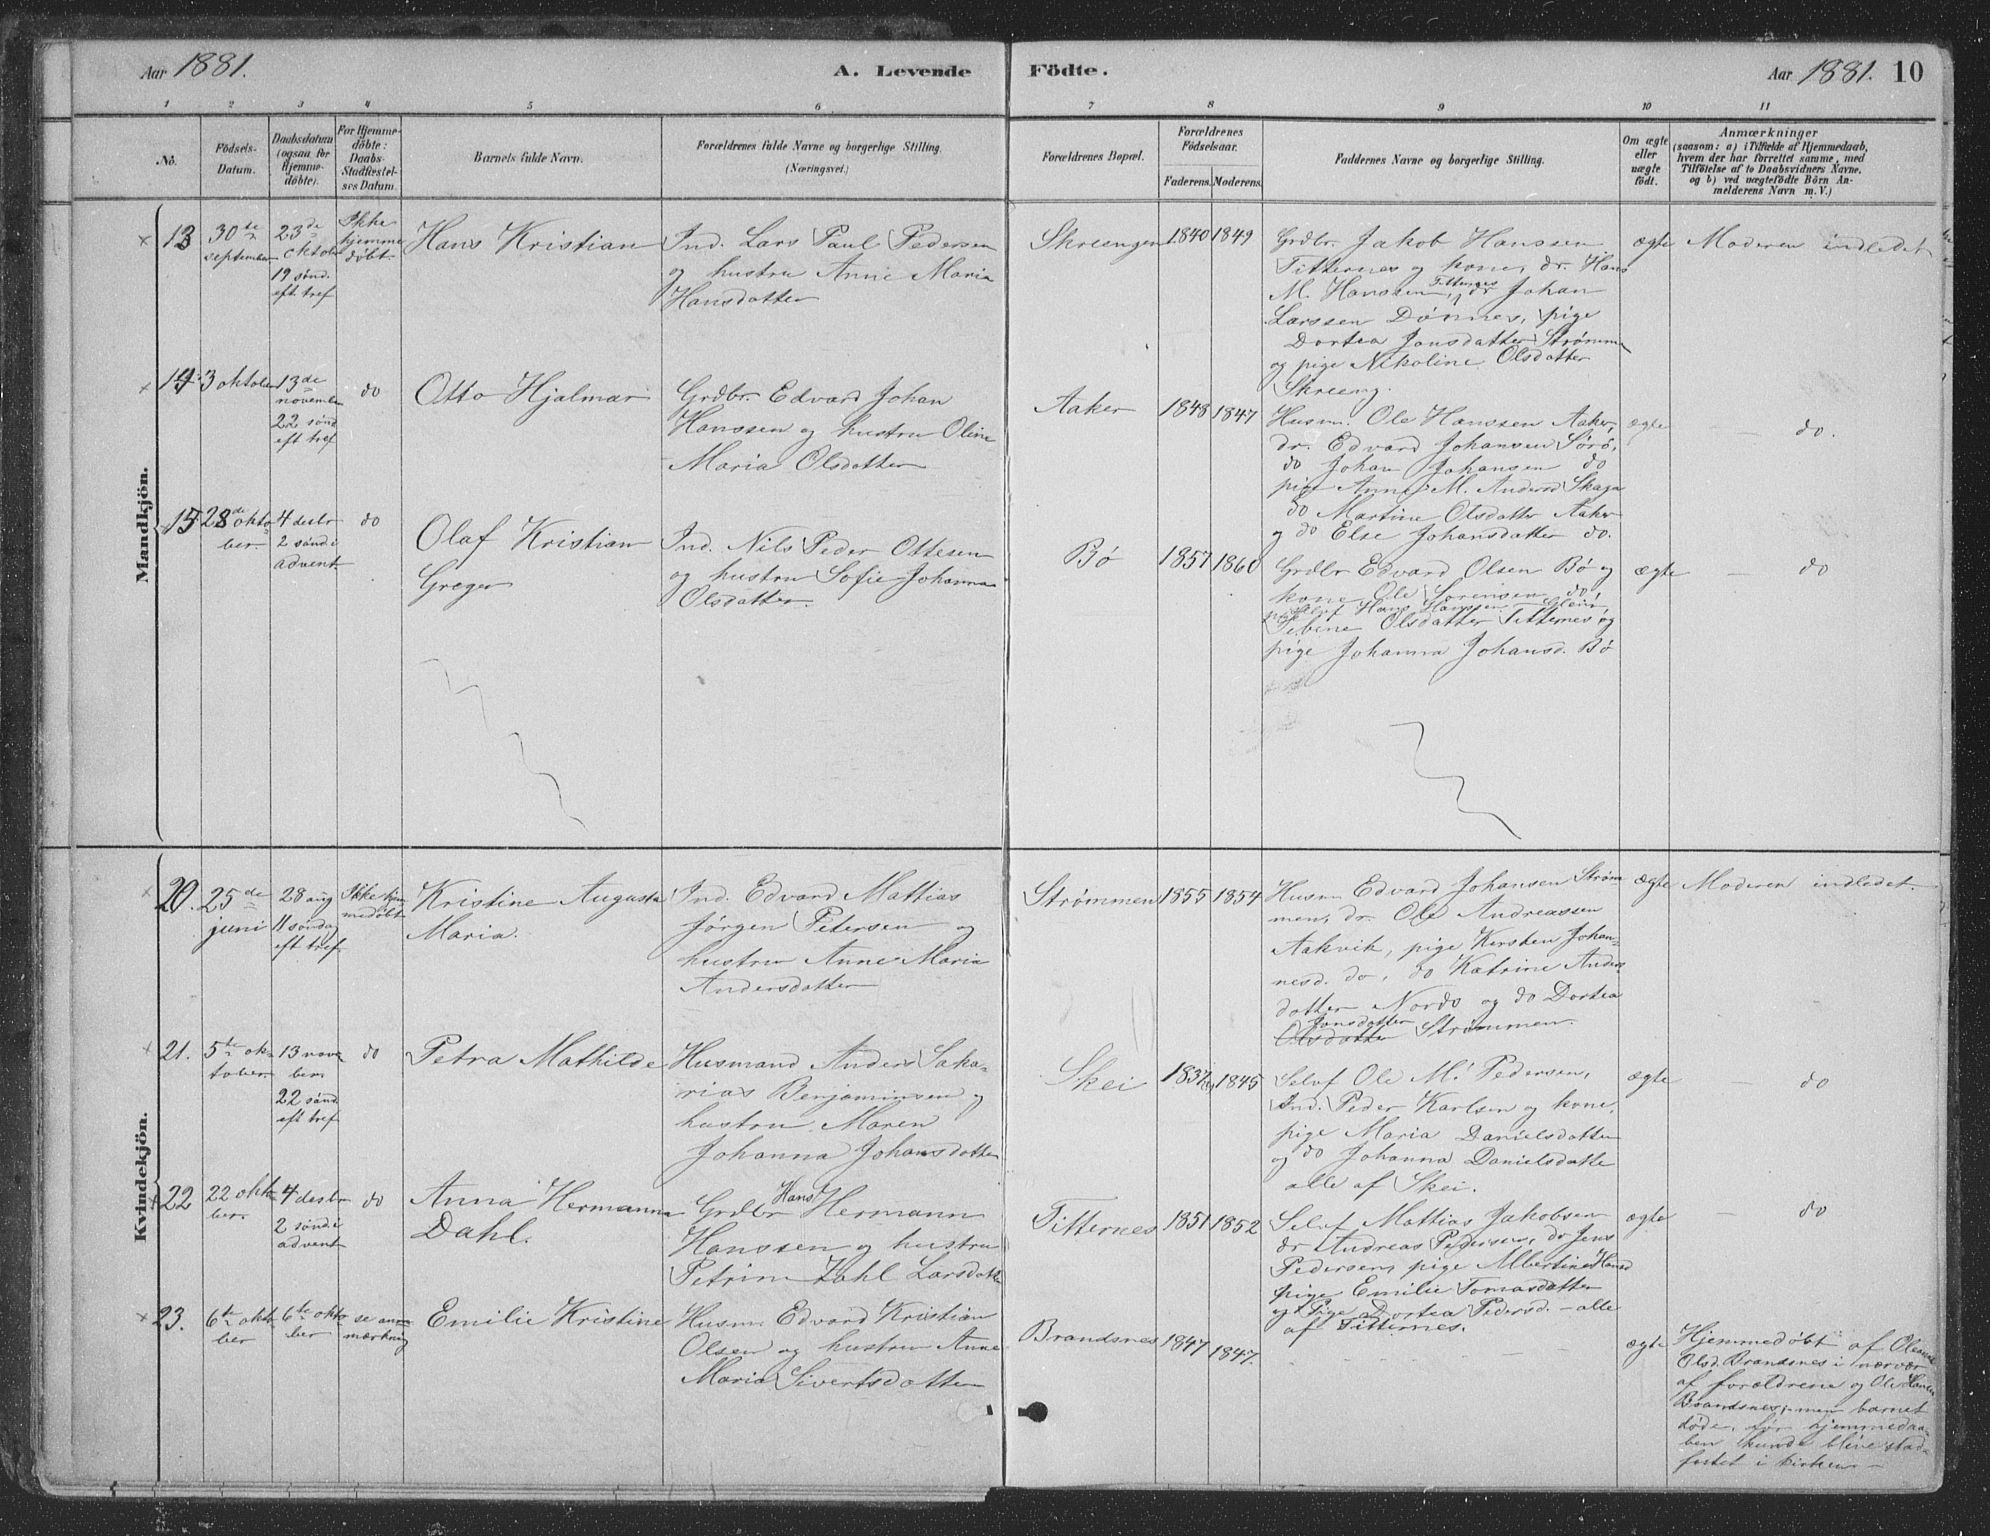 Aar 1881.
A. Levende
Födte.
Aar 1881. 10
1 2 3 4 5 6 7 8 9 10 11
No.
Födsels-
Datum.
Daabsdatum
(ogsaa for
Hjemme-
döbte).
For Hjemme-
döbte:
Daabs-
Stadfæstel-
ses Datum.
Barnets fulde Navn.
Forældrenes fulde Navne og borgerlige Stilling.
(Næringsvei.)
Forældrenes Bopæl.
Forældrenes
Födselsaar.
Faderens. Moderens.
Faddernes Navne og borgerlige Stilling.
Om ægte
eller
uægte
födt.
Anmærkninger
(saasom: a) i Tilfælde af Hjemmedaab,
hvem der har forrettet samme, med
Tilföielse af to Daabsvidners Navne,
og b) ved uægtefödte Börn An-
melderens Navn m. V.)
Mandkjön.
13
30te
september
23de
oktober
19 sønd.
eft tref
Ikke
hjemme
døbt
Hans Kristian
Ind. Lars Paul Pedersen
og hustru Anne Maria
Hansdatter
Skreengen
1840 1849
Grdbr. Jakob Hanssen
Titternes og kone, dr. Hans
M. Hanssen, Titternes dr Johan
Larssen Dønnes, pige
Dortea Jonsdatter Strømme
og pige Nikoline Olsdatter
Skreeng.
ægte
Moderen indledet
14
3 oktober
13de
november
22 sønd
eft tref
do
Otto Hjalmar
Grdbr. Edvard Johan
Hanssen og hustru Oline
Maria Olsdatter
Aaker
1848 1847
Husm. Ole Hanssen Aaker,
dr. Edvard Johansen Sørø,
do Johan Johansen do
pige Anne M. Andersd Skaga
do Martine Olsdatter Aaker
og do Else Johansdatter do.
ægte
— do.
15
28de okto
ber
4 desbr
2 sønd i
advent
do
Olaf Kristian
Greger
Ind. Nils Peder Ottesen
og hustru Sofie Johanna
Olsdatter.
Bø
1857 1860
Grdbr Edvard Olsen Bø og
kone, Ole Sørensen do,
Selvf Hans Hanssen
pige Sibine Olsdatter Titternes og
pige Johanna Johansd. Bø
ægte
— do
Kvindekjön.
20.
25de
juni
28 aug
11 søndag
eft tref
Ikke hjem
medøbt
Kristine Augusta
Maria.
Ind. Edvard Mattias
Jørgen Petersen og
hustru Anne Maria
Andersdatter
Strømmen
1855 1854
Husm Edvard Johansen Strøm
men, dr. Ole Andreassen
Aakvik, pige Kersten Johan-
nesd. do, do Katrine Anders-
datter Nordo og do Dortea
Jonsdatter
Olsdatter Strømmen.
ægte
Moderen indledet.
21.
5te ok-
tober.
13 nove
ber.
22 sønd.
eft tref
do
Petra Mathilde
Husmand Anders Saka-
rias Benjaminsen og
hustru Maren
Johanna Johansdatter
Skei
1837 1845
Selvf Ole M. Pedersen,
Ind. Peder Karlsen og kone,
pige Maria Danielsdatter
og do Johanna Danielsdatte
alle af Skei.
ægte
— do
22
22 okto
ber.
4 desbr
2 sønd i
advent
do
Anna Hermanna
Dahl.
Grdbr Hans Hermann
Hanssen og hustru
Petrine Zahl Larsdatte
Titternes
1851 1852
Selvf Mattias Jakobsen
dr Andreas Pedersen, dr Jens
Pedersen, pige Albertine Hansd
pige Emilie Tomasdatter
og Pige Dortea Pedersd. — alle
af Titternes.
ægte
— do
23.
6te okto
ber
6te okto
ber
se an-
mærkning
Emilie Kristine
Husm Edvard Kristian
Olsen og hustru Anne
Maria Sivertsdatter
Brandsnes
1847 1847.
— — — —
ægte
Hjemmedøbt af Oleanna
Olsd. Brandsnes i nærvær
af forældrene og Ole Hansen
Brandsnes; men barnet
døde, før hjemmedaa-
ben kunde blive stad-
fæstet i kirken. —